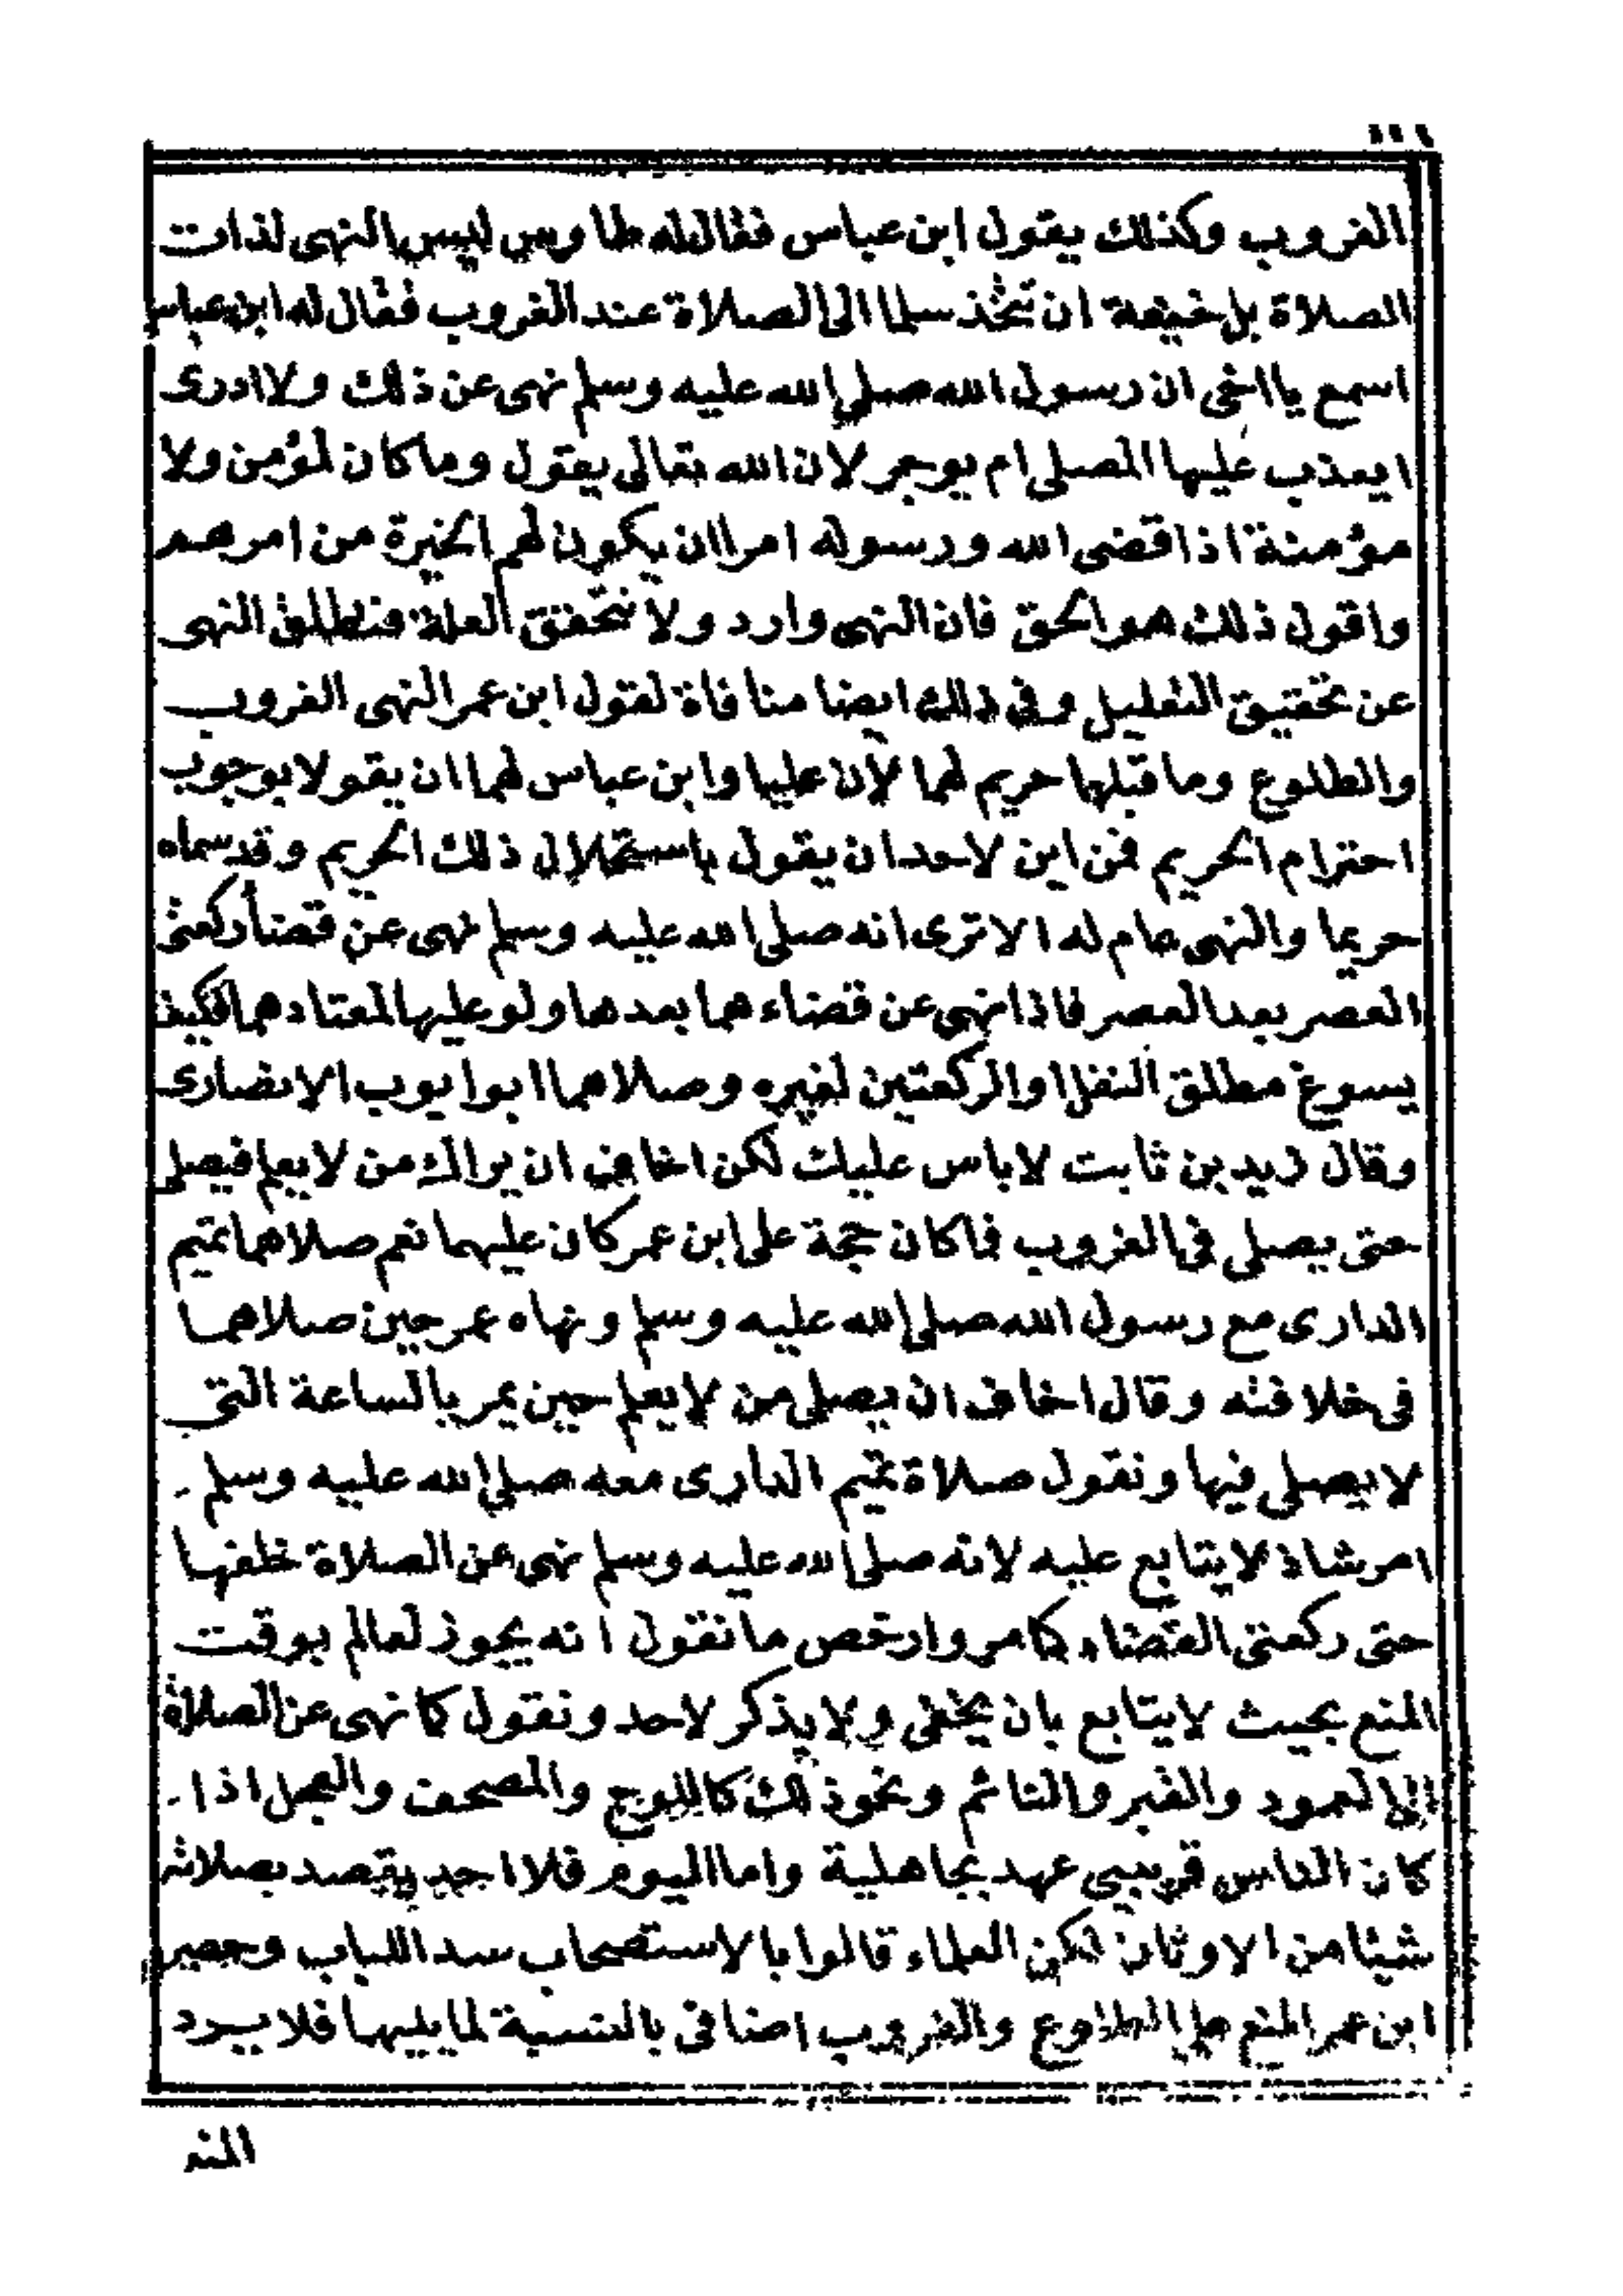 الغروب وكذلك يقول ابن عباس فقال له طاوس ليس النهى لذات
الصلاة بل خيفة ان تتخذ سلما الى الصلاة عند الغروب فقال له ابن عباس
اسمع يا اخى ان رسول الله صلى الله عليه وسلم نهى عن ذلك ولا ادرى
ايعذب عليها المصلى ام يوجر لان الله تعالى يقول وما كان لمؤمن ولا
مؤمنة اذا قضى الله ورسوله امرا ان يكون لهم الخيرة من امرهم
واقول ذلك هو الحق فان النهى وارد ولا نتحقق العلة فنطلق النهى
عن تحقيق التعليل وفى ذلك ايضا منافاة لقول ابن عمر النهى الغروب
والطلوع وما قبلها حريم لهما لان عليا وابن عباس لهما ان يقولا بوجوب
احترام الحريم فمن اين لاحد ان يقول باستحلال ذلك الحريم وقد سماه
حريما والنهى عام له الا ترى انه صلى الله عليه وسلم نهى عن قضأ ركعتى
العصر بعد العصر فاذا نهى عن قضاءهما بعدها ولو عليها لمعتادهما فكيف
يسوغ مطلق النفل او الركعتين لغيره وصلاهما ابوا يوب الانصارى
وقال زيد بن ثابت لا باس عليك لكن اخاف ان يراك من لا يعلم فيصلى
حتى يصلى فى الغروب فما كان حجة على ابن عمر كان عليهما نعم صلاهما تميم
الدارى مع رسول الله صلى الله عليه وسلم ونهاه عمر حين صلاهما
فى خلافته وقال اخاف ان يصلى من لا يعلم حين يمر بالساعة التى
لا يصلى فيها ونقول صلاة تميم الدارى معه صلى الله عليه وسلم
امر شاذ لا يتابع عليه لانه صلى الله عليه وسلم نهى عن الصلاة خلفها
حتى ركعتى القضاء كما مر وارخص ما نقول انه يجوز لعالم بوقت
المنع بحيث لا يتابع بان يخفى ولا يذكر لاحد ونقول كما نهى عن الصلاة
الى العمود والقبر والنائم ونحو ذلك كاللوح والمصحف والعجل اذا
كان الناس قريبى عهد بجاهلية واما اليوم فلا احد يقصد بصلاته
شيئا من الاوثان لكن العلماء قالوا بالاستصحاب سدا للباب وحصر
ابن عمر المنع على الطلوع والغروب اضافى بالنسبة لما يليها فلا يرد